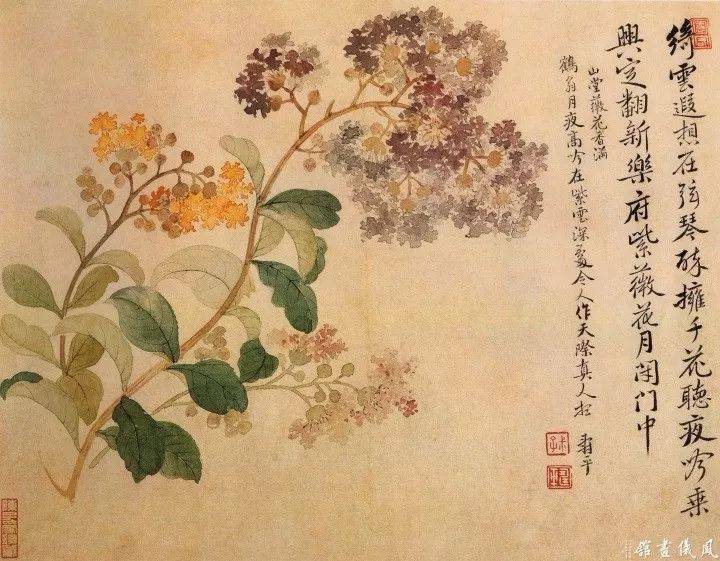 綺雲遐想在弦琴醉擁千花聽夜吟乘
興定翻新樂府紫薇花月門中
山堂薇花香滿
鶴翁月夜高吟在紫雲深處令人作天際真人想 壽平
風儀畫館